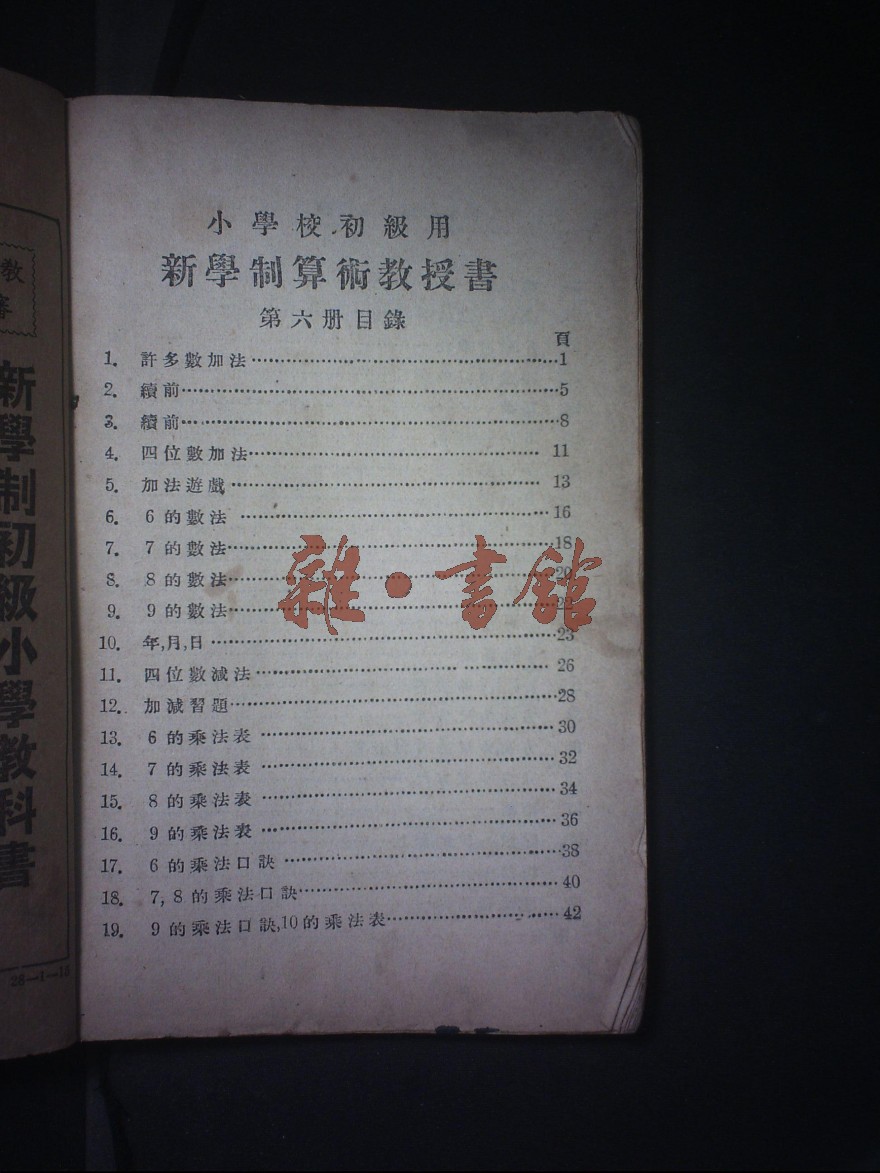 小學校初級用
新學制算術教授書
第六册目錄
頁
1. 許多數加法⋯⋯1
2. 續前⋯⋯5
3. 續前⋯⋯8
4. 四位數加法⋯⋯11
5. 加法遊戲⋯⋯13
6. 6的數法⋯⋯16
7. 7的數法⋯⋯18
8. 8的數法⋯⋯20
9. 9的數法⋯⋯22
10. 年,月,日⋯⋯23
11. 四位數減法⋯⋯26
12. 加減習題⋯⋯28
13. 6的乘法表⋯⋯30
14. 7的乘法表⋯⋯32
15. 8的乘法表⋯⋯34
16. 9的乘法表⋯⋯36
17. 6的乘法口訣⋯⋯38
18. 7,8的乘法口訣⋯⋯40
19. 9的乘法口訣,10的乘法表⋯⋯42
雜·書館
教
審
新學制初級小學教科書